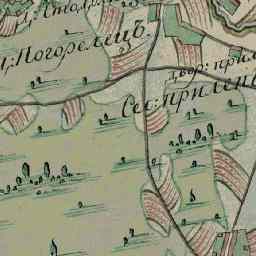 д: Погорелецъ
двор: при
Сел: прилеп